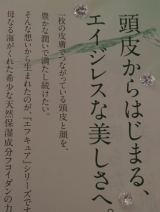 頭皮からはじまる、
エイジレスな美しさへ。
一枚の皮膚でつながっている頭皮と顔を、
豊かな潤いで満たし続けたい。
そんな想いから生まれたのが、「エフキュア」シリーズです
母なる海がくれた希少な天然保湿成分フコイダンの力